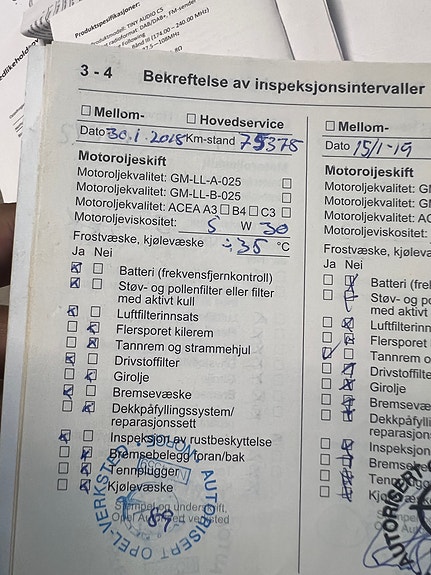 Produktspesifikasjoner:
Produktmodell: TINY AUDIO C5
DAB/DAB+, FM-sender
Bånd III (174.00 ~ 240.00 MHz)
Following
87.5~108MHz
3 - 4 Bekreftelse av inspeksjonsintervaller
☐ Mellom- ☐ Hovedservice
Dato 30.1.2018 Km-stand 75375
Motoroljeskift
Motoroljekvalitet: GM-LL-A-025 ☐
Motoroljekvalitet: GM-LL-B-025 ☐
Motoroljekvalitet: ACEA A3 ☐ B4 ☐ C3 ☐
Motoroljeviskositet: 5 W 30
Frostvæske, kjølevæske -35 °C
Ja Nei
☒ ☐ Batteri (frekvensfjernkontroll)
☒ ☐ Støv- og pollenfilter eller filter
med aktivt kull
☒ ☐ Luftfilterinnsats
☐ ☒ Flersporet kilerem
☐ ☒ Tannrem og strammehjul
☒ ☐ Drivstoffilter
☐ ☒ Girolje
☒ ☐ Bremsevæske
☐ ☒ Dekkpåfyllingssystem/
reparasjonssett
☒ ☐ Inspeksjon av rustbeskyttelse
☐ ☒ Bremsebelegg foran/bak
☐ ☒ Tennplugger
☐ ☒ Kjølevæske
Stempel og underskrift,
Opel Autorisert verksted
AUTORISERT OPEL-VERKSTED
☐ Mellom-
Dato 15/1-19
Motoroljeskift
Motoroljekvalitet: GM
Motoroljekvalitet: GM
Motoroljekvalitet: AC
Motoroljeviskositet:
Frostvæske, kjølevæ
Ja Nei
Batteri (frek
Støv- og po
med aktivt k
Luftfilterinn
Flersporet k
Tannrem og
Drivstoffilte
Girolje
Bremsevæ
Dekkpåfyllin
reparasjons
Inspeksjon
Bremse
Tennp
Kjø
AUTORISER